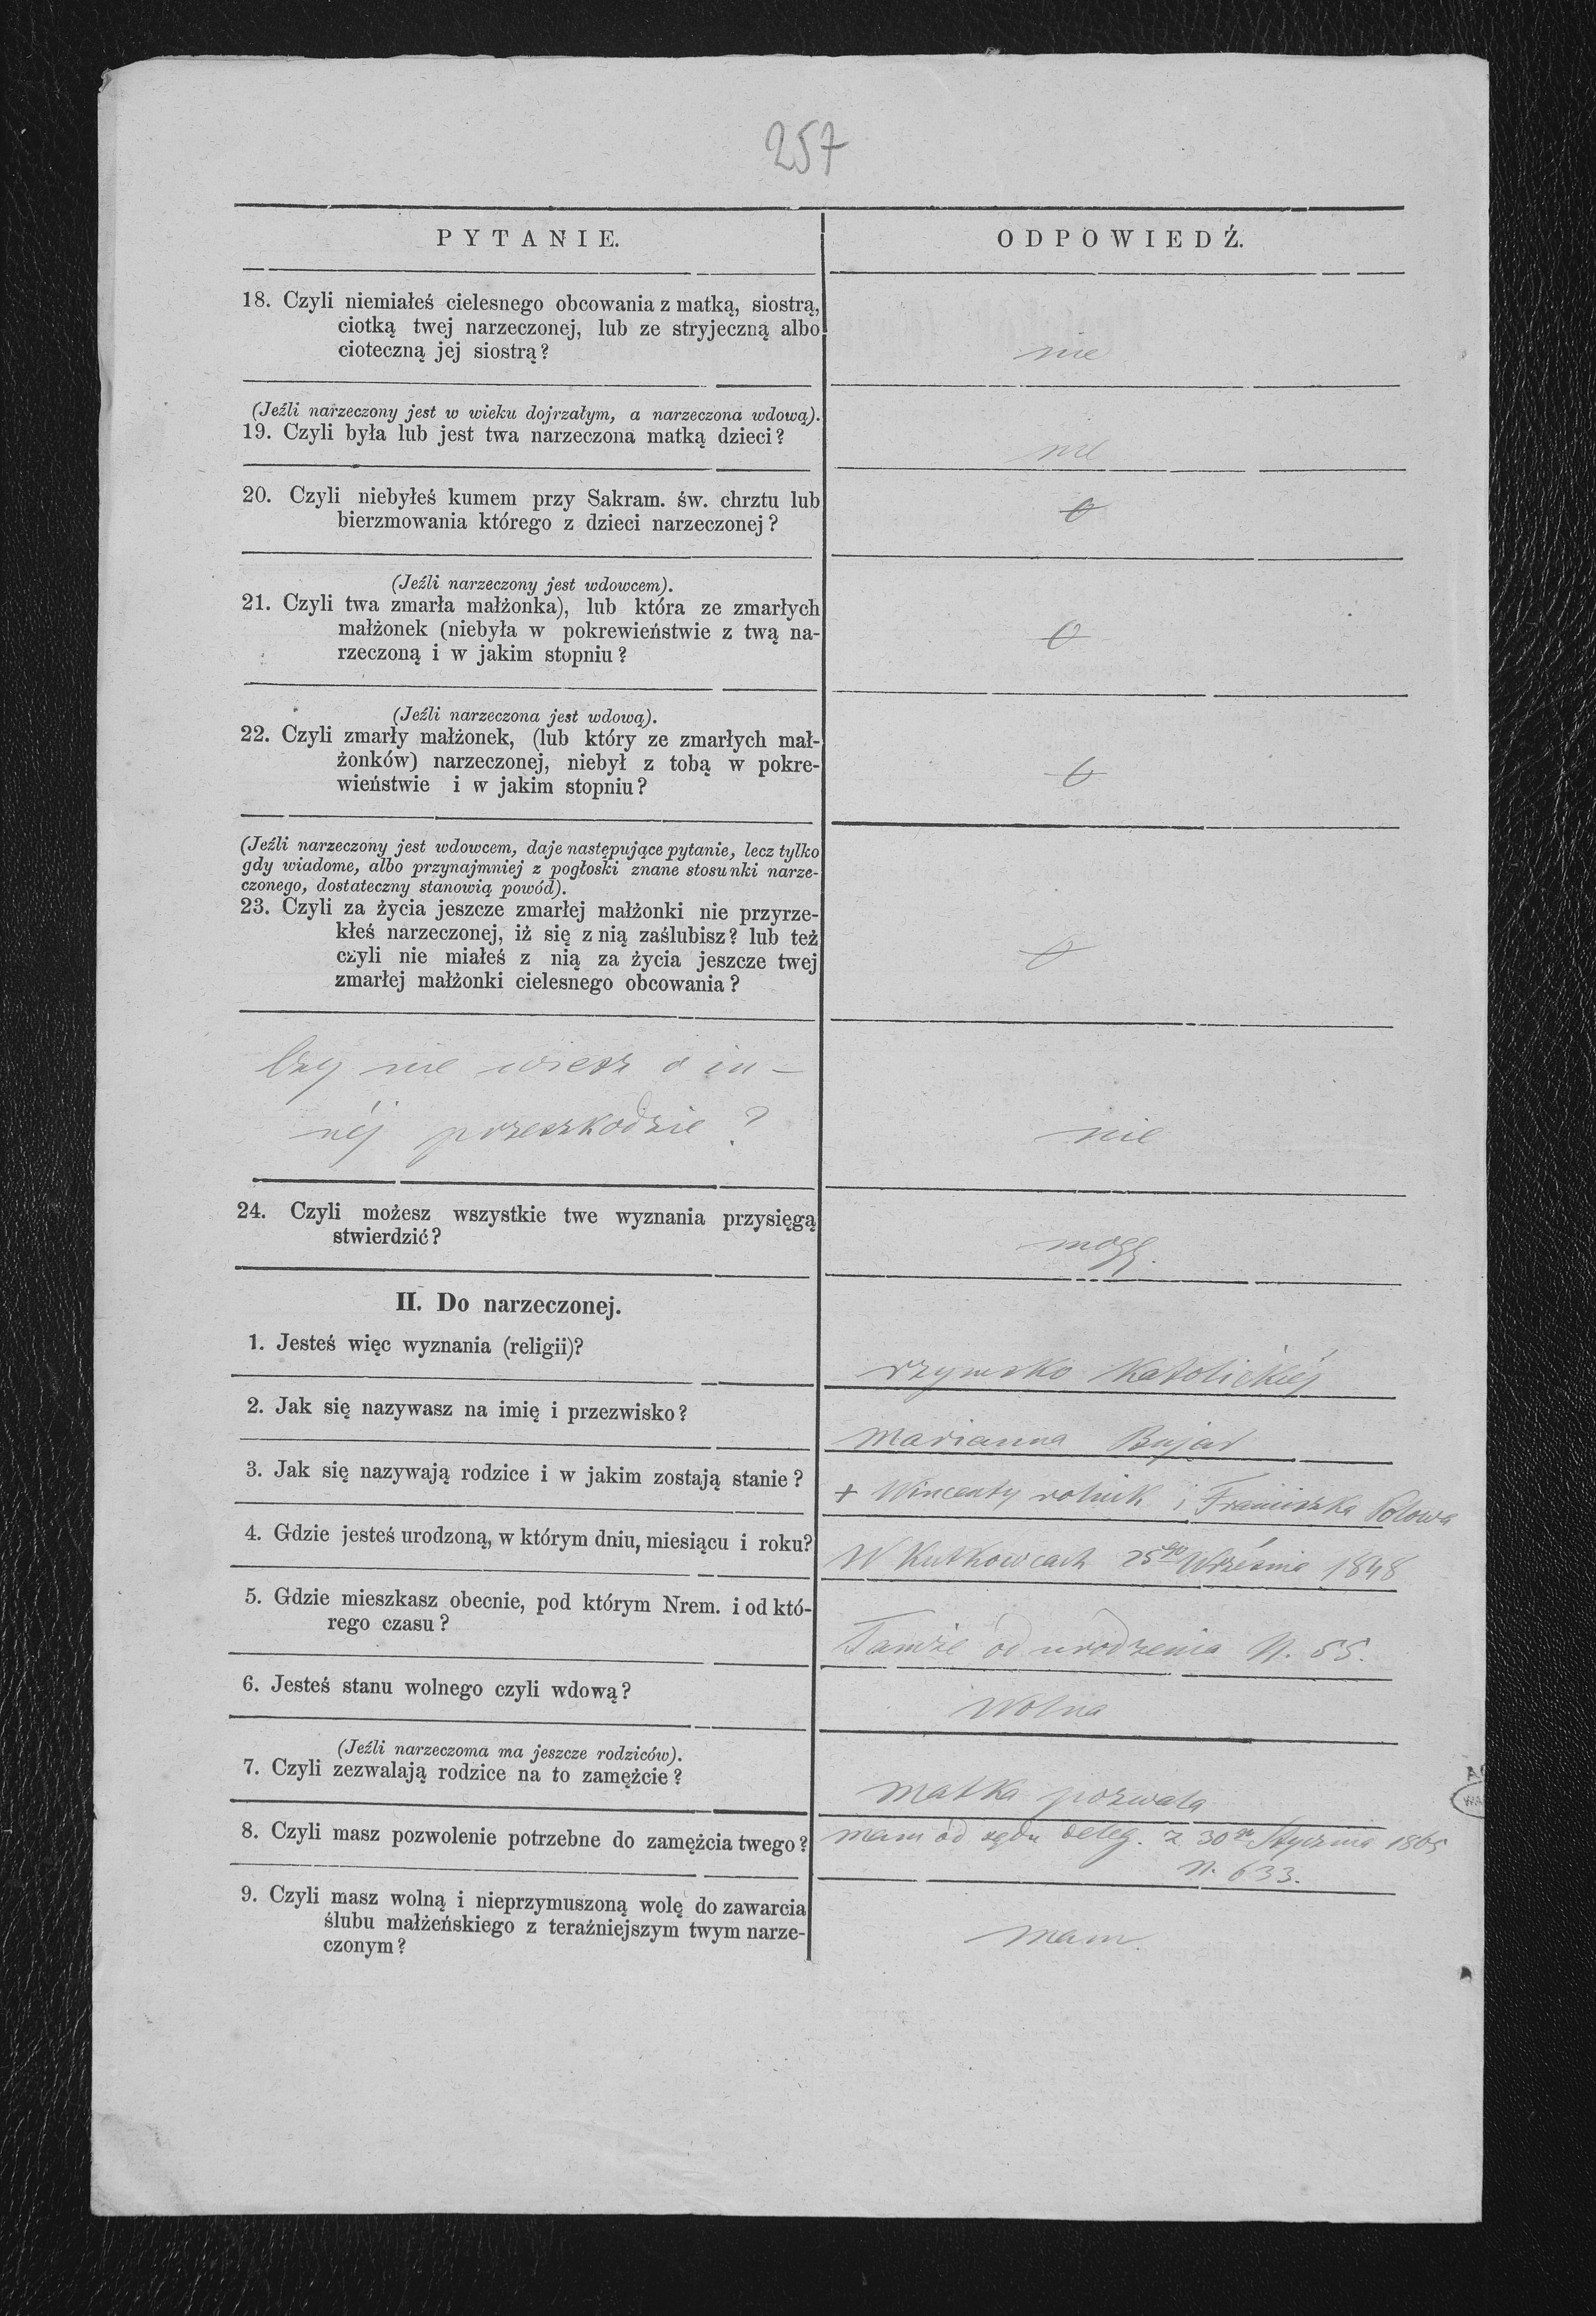 257
PYTANIE.
ODPOWIEDŹ.
18. Czyli niemiałeś cielesnego obcowania z matką, siostrą,
ciotką twej narzeczonej, lub ze stryjeczną albo
cioteczną jej siostrą?
nie
(Jeźli narzeczony jest w wieku dojrzałym, a narzeczona wdową).
19. Czyli była lub jest twa narzeczona matką dzieci?
nie
20. Czyli niebyłeś kumem przy Sakram. św. chrztu lub
bierzmowania którego z dzieci narzeczonej?
(Jeźli narzeczony jest wdowcem).
21. Czyli twa zmarła małżonka), lub która ze zmarłych
małżonek (niebyła w pokrewieństwie z twą na-
rzeczoną i w jakim stopniu?
(Jeźli narzeczona jest wdową).
22. Czyli zmarły małżonek, (lub który ze zmarłych mał-
żonków) narzeczonej, niebył z tobą w pokre-
wieństwie i w jakim stopniu?
(Jeźli narzeczony jest wdowcem, daje następujące pytanie, lecz tylko
gdy wiadome, albo przynajmniej z pogłoski znane stosunki narze-
czonego, dostateczny stanowią powód).
23. Czyli za życia jeszcze zmarłej małżonki nie przyrze-
kłeś narzeczonej, iż się z nią zaślubisz? lub też
czyli nie miałeś z nią za życia jeszcze twej
zmarłej małżonki cielesnego obcowania?
Czy nie wiesz o in-
néj przeszkodzie?
nie
24. Czyli możesz wszystkie twe wyznania przysięgą
stwierdzić?
mogę.
II. Do narzeczonej.
1. Jesteś więc wyznania (religii)?
rzymsko Katolickiéj
2. Jak się nazywasz na imię i przezwisko?
Marianna Bujar
3. Jak się nazywają rodzice i w jakim zostają stanie?
+ Wincenty rolnik i Franciszka Polowa
4. Gdzie jesteś urodzoną, w którym dniu, miesiącu i roku?
W Kutkowcach 25go Września 1848
5. Gdzie mieszkasz obecnie, pod którym Nrem. i od któ-
rego czasu?
Tamże od urodzenia N. 55.
6. Jesteś stanu wolnego czyli wdową?
Wolna
(Jeźli narzeczoma ma jeszcze rodziców).
7. Czyli zezwalają rodzice na to zamężcie?
Matka pozwala
8. Czyli masz pozwolenie potrzebne do zamężcia twego?
mam od sądu deleg. z 30go Stycznia 1865
N. 633.
9. Czyli masz wolną i nieprzymuszoną wolę do zawarcia
ślubu małżeńskiego z teraźniejszym twym narze-
czonym?
Mam.